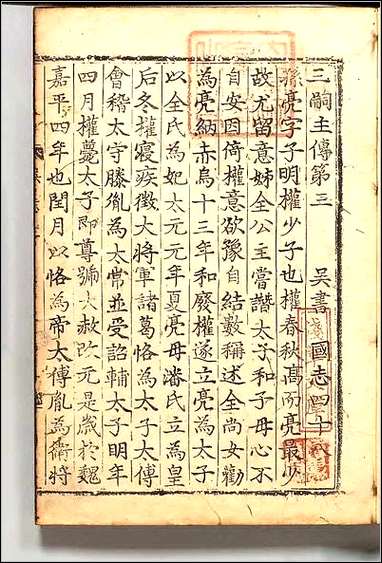 三嗣主傳第三 吳書 國志四十
孫亮字子明權少子也權春秋高而亮最少
故尤留意姊全公主嘗譖太子和子母心不
自安因倚權意欲豫自結數稱述全尚女勸
為亮納赤烏十三年和廢權遂立亮為太子
以全氏為妃太元元年夏亮母潘氏立為皇
后冬權寢疾徵大將軍諸葛恪為太子太傅
會稽太守滕胤為太常並受詔輔太子明年
四月權薨太子即尊號大赦改元是歲於魏
嘉平四年也閏月以恪為帝太傅胤為衛將